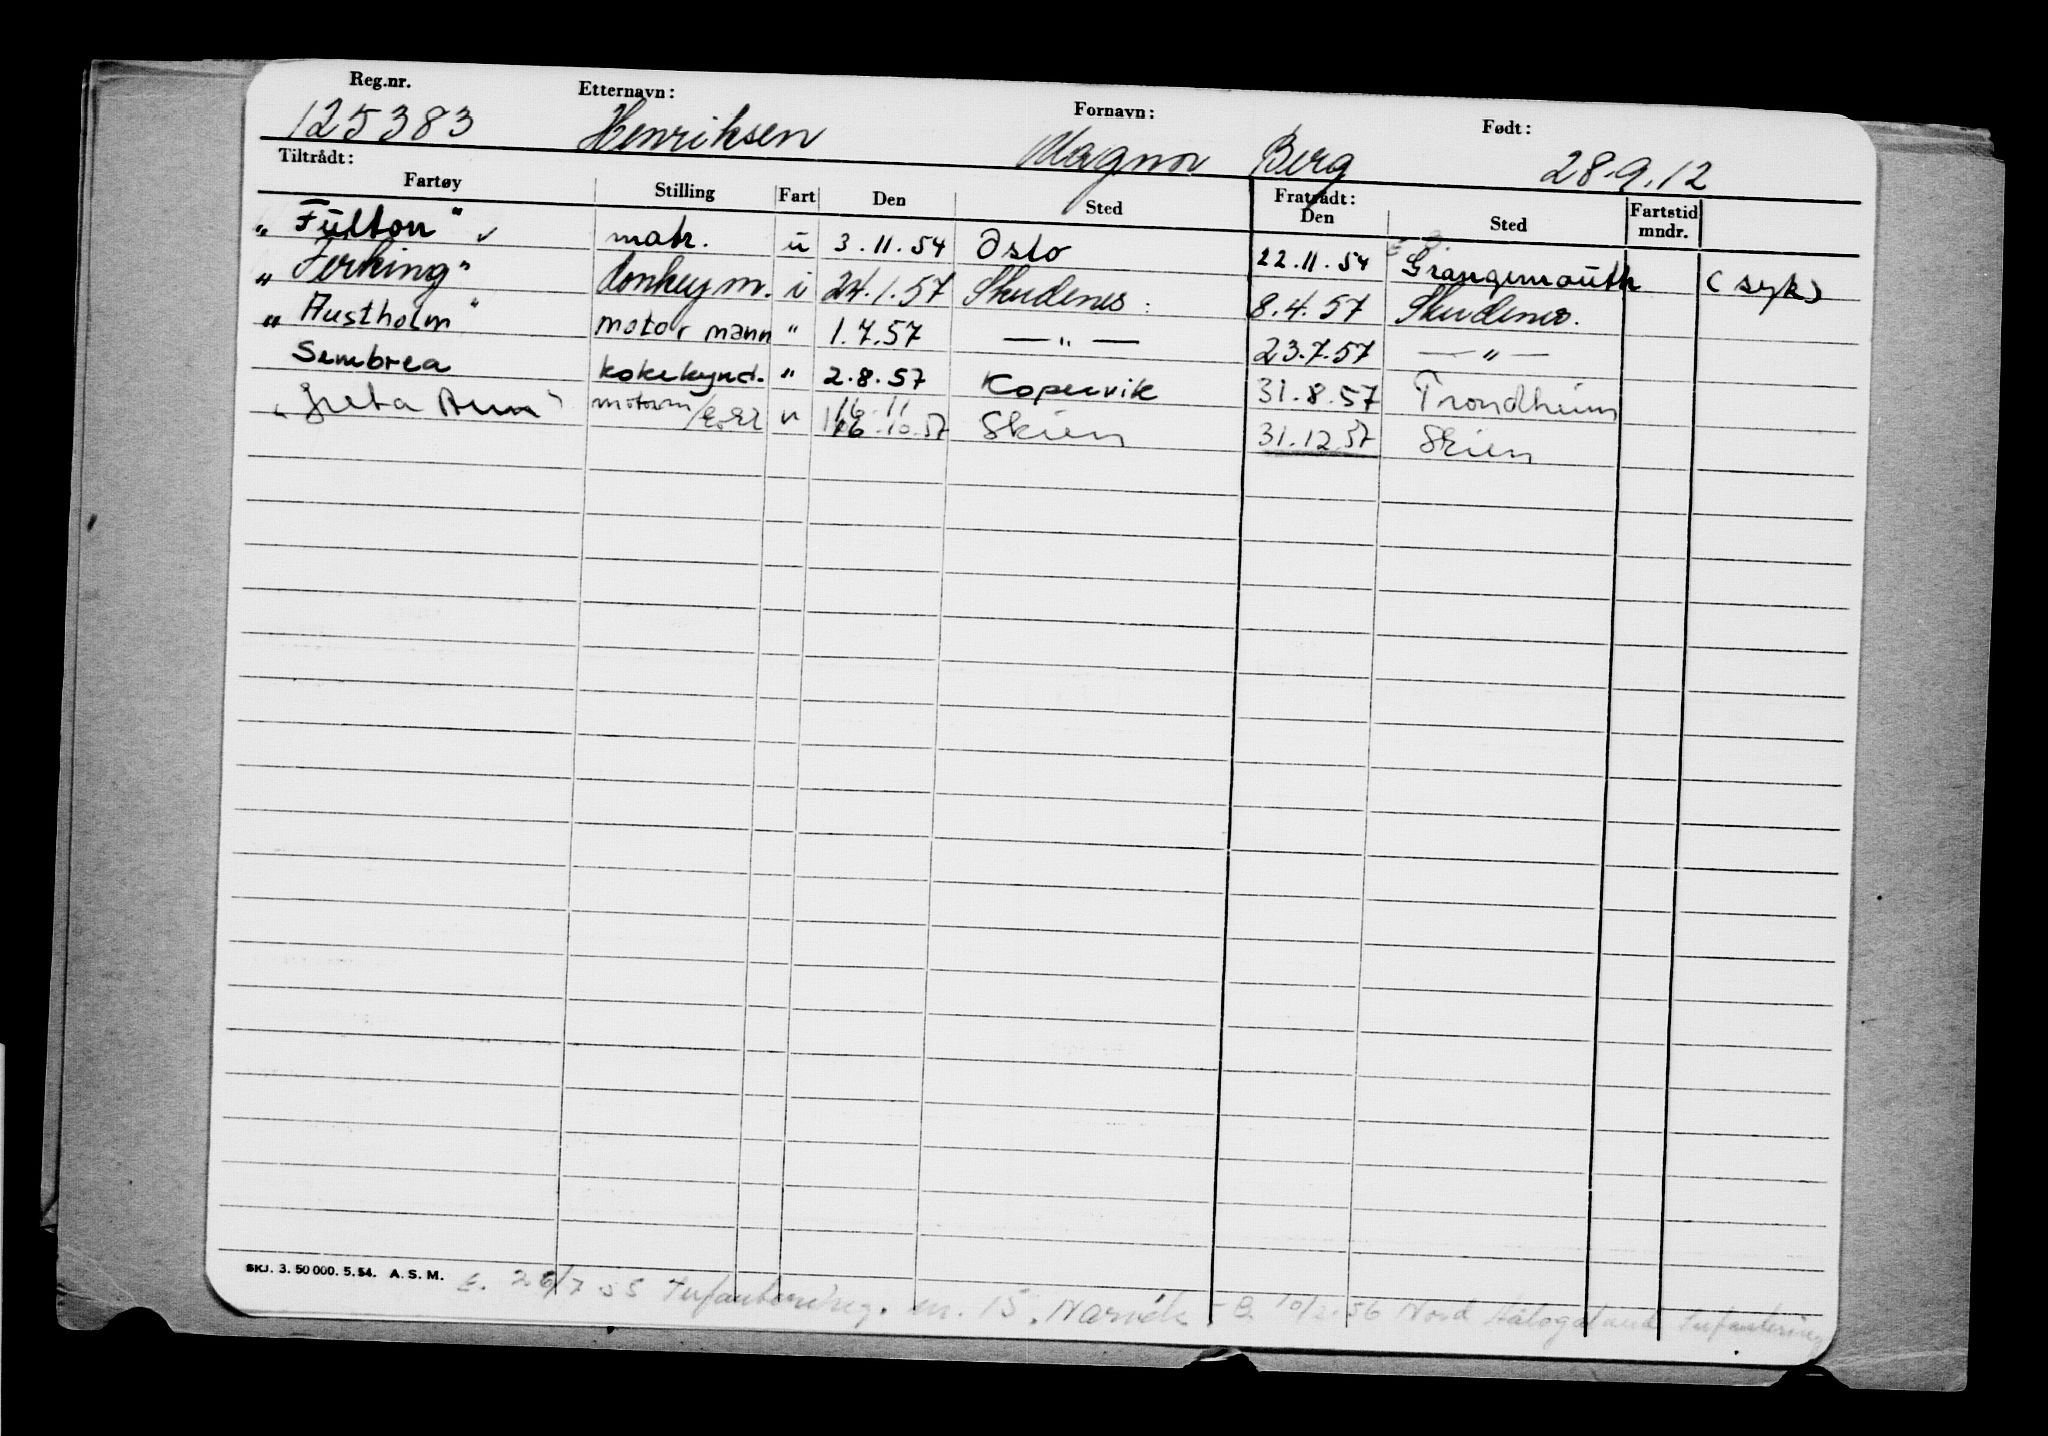 Reg.nr. Etternavn: Fornavn: Født:
125383 Henriksen Magnor Berg 28.9.12
Tiltrådt: Fratrådt:
Fartøy Stilling Fart Den Sted Den Sted Fartstid mndr.
"Fulton" ✓ matr. u 3.11.54 Oslo 22.11.54 Grangemouth (syk)
"Jerking" donkeym. i 24.1.57 Skudenes 8.4.57 Skudenes.
"Austholm" motormann " 1.7.57 — " — 23.7.57 — " —
Sembrea kokekynd. " 2.8.57 Kopervik 31.8.57 Trondheim
"Greta Ann" motorm 16.11 16.10.57 Skien 31.12.57 Skien
SKJ. 3. 50 000. 5. 54. A. S. M. E. 26/7 55 Infanterireg. nr. 15. Narvik - 10/2.56 Nord Hålogaland Infanterireg